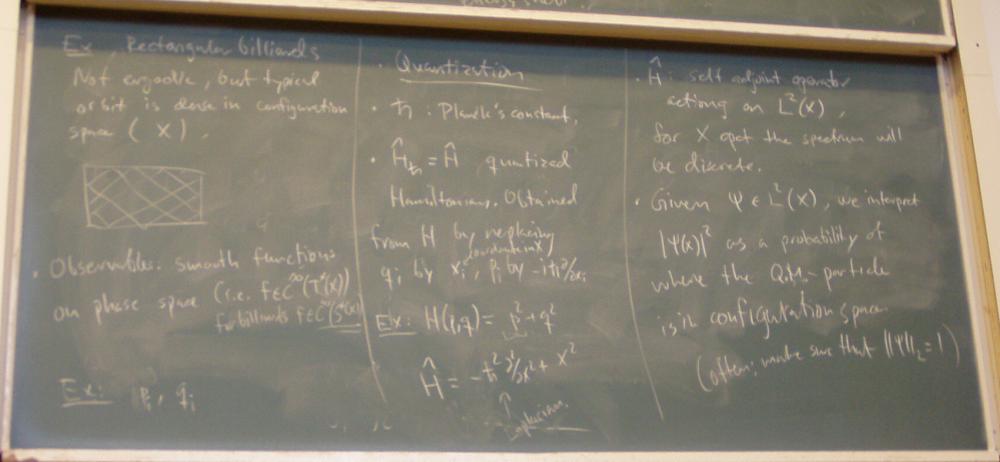 Ex. Rectangular billiards
Not ergodic, but typical
orbit is dense in configuration
space (X).
• Observables: smooth functions
on phase space (i.e. f∈C^∞(T*(X))
for billiards f∈C^∞(S*(X))
Ex: p_i, q_i
• Quantization
• ħ : Planck's constant,
• Ĥ_ħ = Ĥ quantized
Hamiltonian. Obtained
from H by replacing
coordinate in X
q_i by x_i, p_i by -iħ∂/∂x_i
Ex: H(p,q) = p²+q²
Ĥ = -ħ²∂²/∂x² + x²
↑
Laplacian.
• Ĥ : self adjoint operator
acting on L²(X),
for X cpct the spectrum will
be discrete.
• Given ψ ∈ L²(X), we interpret
|ψ(x)|² as a probability of
where the Q.M.-particle
is in configutation space
(often: make sure that ||ψ||_2 = 1)